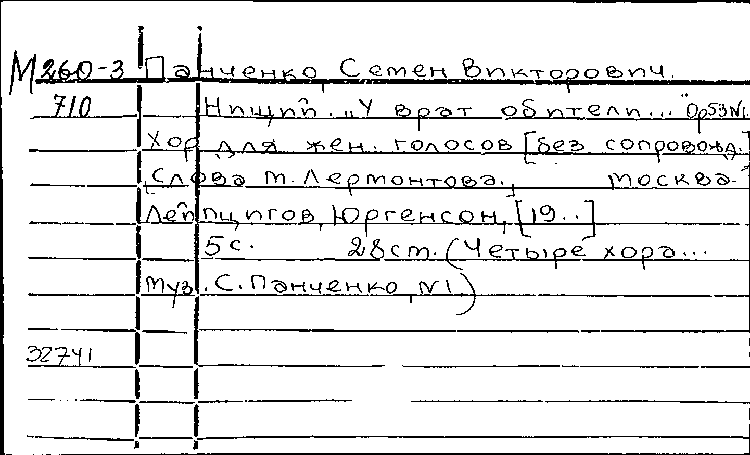 М260-3 Панченко, Семен Викторович.
710 Нищий. „У врат обители..." Ор53N1.
Хор для жен. голосов [без сопровожд.]
[Слова М. Лермонтова.] Москва-
Лейпциг, Юргенсон, [19..]
5с. 28см. (Четыре хора...
Муз. С. Панченко, №1)
32741